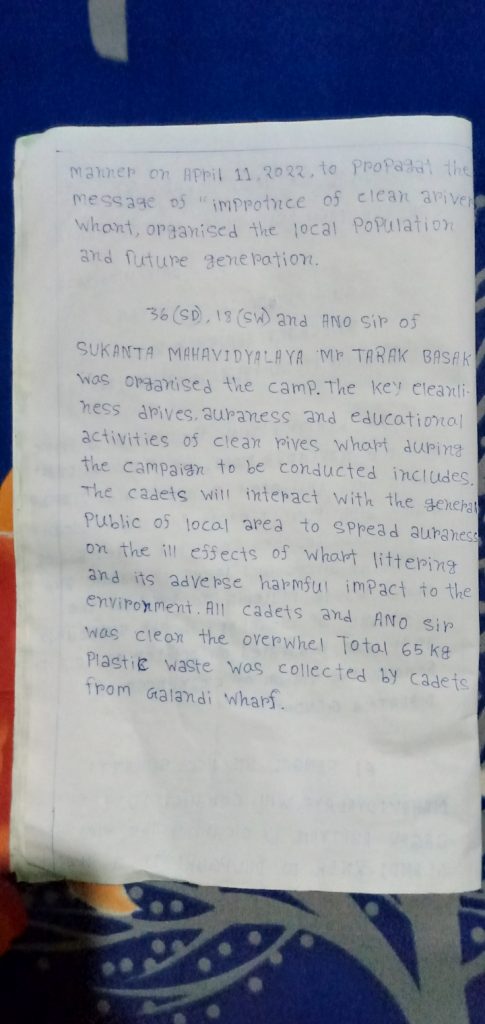 manner on April 11, 2022, to Propagat the
message of "improtnce of clean ariver
whant, organised the local Population
and future generation.
36(SD), 18(SW) and ANO Sir of
SUKANTA MAHAVIDYALAYA Mr TARAK BASAK
was organised the camp. The key cleanli-
ness drives, auraness and educational
activities of clean rives whart during
the campaign to be conducted includes.
The cadets will interact with the general
Public of local area to spread auraness
on the ill effects of whart littering
and its adverse harmful impact to the
environment. All cadets and ANO Sir
was clean the overwhel Total 65 kg
Plastic waste was collected by cadets
from Galandi wharf.